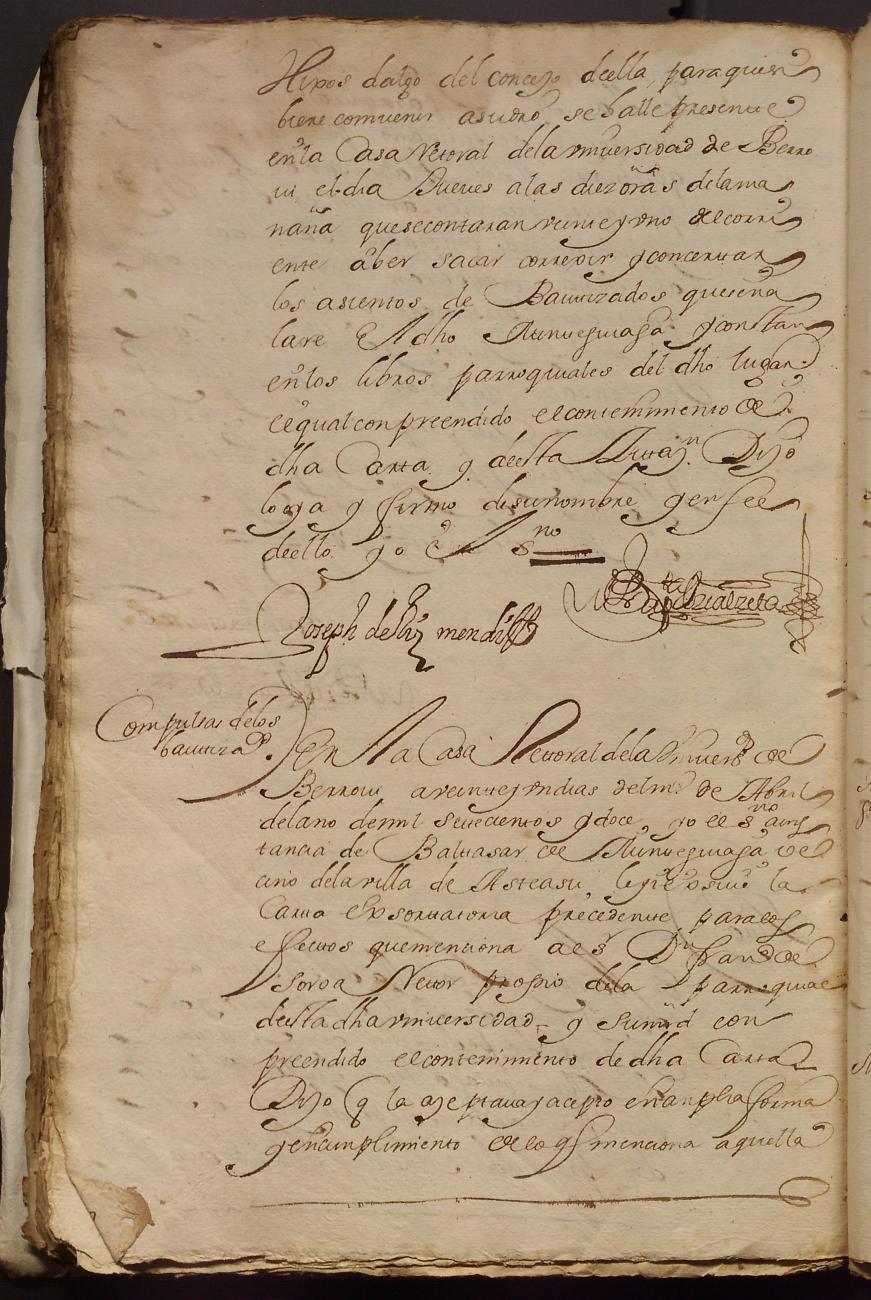 Hixos dalgo del concejo deella, paraquesi
biere combenir asudro se halle presente
enla Casa Retoral dela universidad de Berro
vi el dia Jueves alas diez oras dela ma
ñana quesecontaran veinteyuno del corri
ente aber sacar correxir y concertar
los asientos de Bautizados quesena
lare El dho Aurteguiaga y constan
enlos libros parroquiales del dho lugar
elqual conpreendido elcontenimiento de
dha Carta y deesta Dijo
looya y firmo desunombre y en fee
deello yo el sno
Joseph de mendi
Baptta de Zialzeta
Compulsa delos
bautizados
En la Casa Rettoral dela Univerd de
Berrovi aveinteyundias delms de Abril
delano demil settecientos y doce, yo el sno ains
tancia de Balthasar de Aurteguiaga ve
cino dela villa de Asteasu, leyé la
Carta Exsortatoria precedente paralos
efectos quemenciona al sr Dn Franco de
Soroa Rettor propio dela parroquial
deesta dha universidad, y sumrd con
preendido elcontenimiento de dha Carta
Dijo q la azeptava y acepto en anplia forma
y en cunplimiento delo q menciona aquella